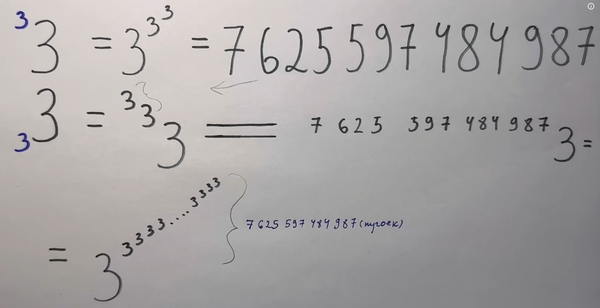 ³3 = 3^3^3 = 7 625 597 484 987
₃3 = ³³3 = ⁷ ⁶²⁵ ⁵⁹⁷ ⁴⁸⁴ ⁹⁸⁷3 =
= 3^3^3^3^3....3^3^3^3 } 7 625 597 484 987 (троек)